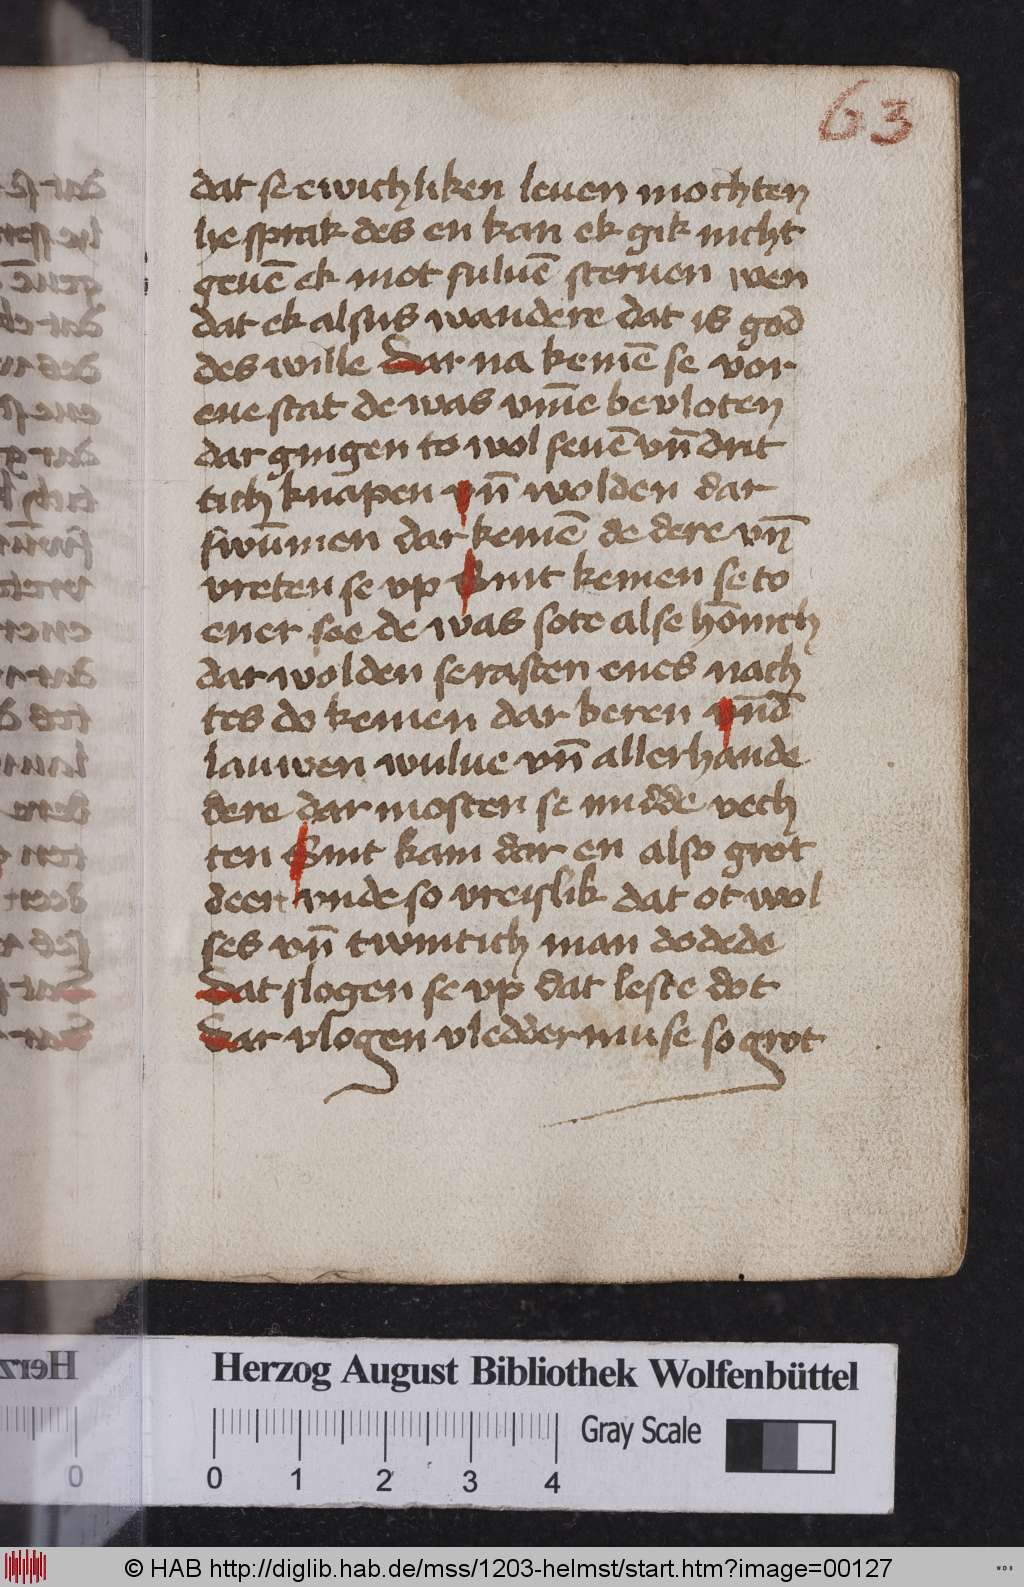 63
dat se ewichliken leuen mochten
he sprak des en kan ek gik nicht
geuē ek mot suluē steruen wen
dat ek alsus wandere dat is god
des wille Dar na kemē se vor
ene stat de was vm̄e bevloten
dar gingen to wol seuē vn̄ drit
tich knapen vn̄ wolden dar
swūmen dar kemē de dere vn̄
vreten se vp Sint kemen se to
ener see de was sote alse hōnich
dar wolden se rasten enes nach
tes do kemen dar beren vn̄d
lauwen wulue vn̄ allerhande
dere dar mosten se midde vech
ten Sint kam dar en also grot
deert vnde so vreislik dat ot wol
ses vn̄ twintich man dodede
Dat slogen se vp dat leste dot
Dar vlogen vleddermuse so grot
Herzog August Bibliothek Wolfenbüttel
0 1 2 3 4
Gray Scale
© HAB http://diglib.hab.de/mss/1203-helmst/start.htm?image=00127